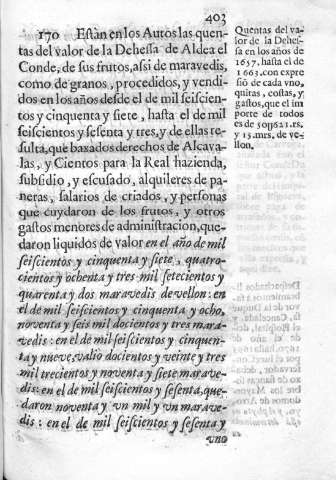 403
170 Estàn en los Autos las quen-
tas del valor de la Dehessa de Aldea el
Conde, de sus frutos, assi de maravedis,
como de granos, procedidos, y vendi-
dos en los años desde el de mil seiscien-
tos y cinquenta y siete, hasta el de mil
seiscientos y sesenta y tres, y de ellas re-
sulta, que baxados derechos de Alcava-
las, y Cientos para la Real hazienda,
subsidio, y escusado, alquileres de pa-
neras, salarios de criados, y personas
que cuydaron de los frutos, y otros
gastos menores de administracion, que-
daron liquidos de valor en el año de mil
seiscientos y cinquenta y siete, quatro-
cientos y ochenta y tres mil setecientos y
quarenta y dos maravedis de vellon: en
el de mil seiscientos y cinquenta y ocho,
noventa y seis mil docientos y tres mara-
vedis: en el de mil seiscientos y cinquen-
ta y nueve, valiò docientos y veinte y tres
mil trecientos y noventa y siete marave-
dis: en el de mil seiscientos y sesenta, que-
daron noventa y vn mil y vn marave-
dis: en el de mil seiscientos y sesenta y
vno
Quentas del va-
lor de la Dehes-
sa en los años de
1657. hasta el de
1663. con expre
sió de cada vno,
quitas, costas, y
gastos, que el im
porte de todos
es de 50y621. rs.
y 15. mrs. de ve-
llon.